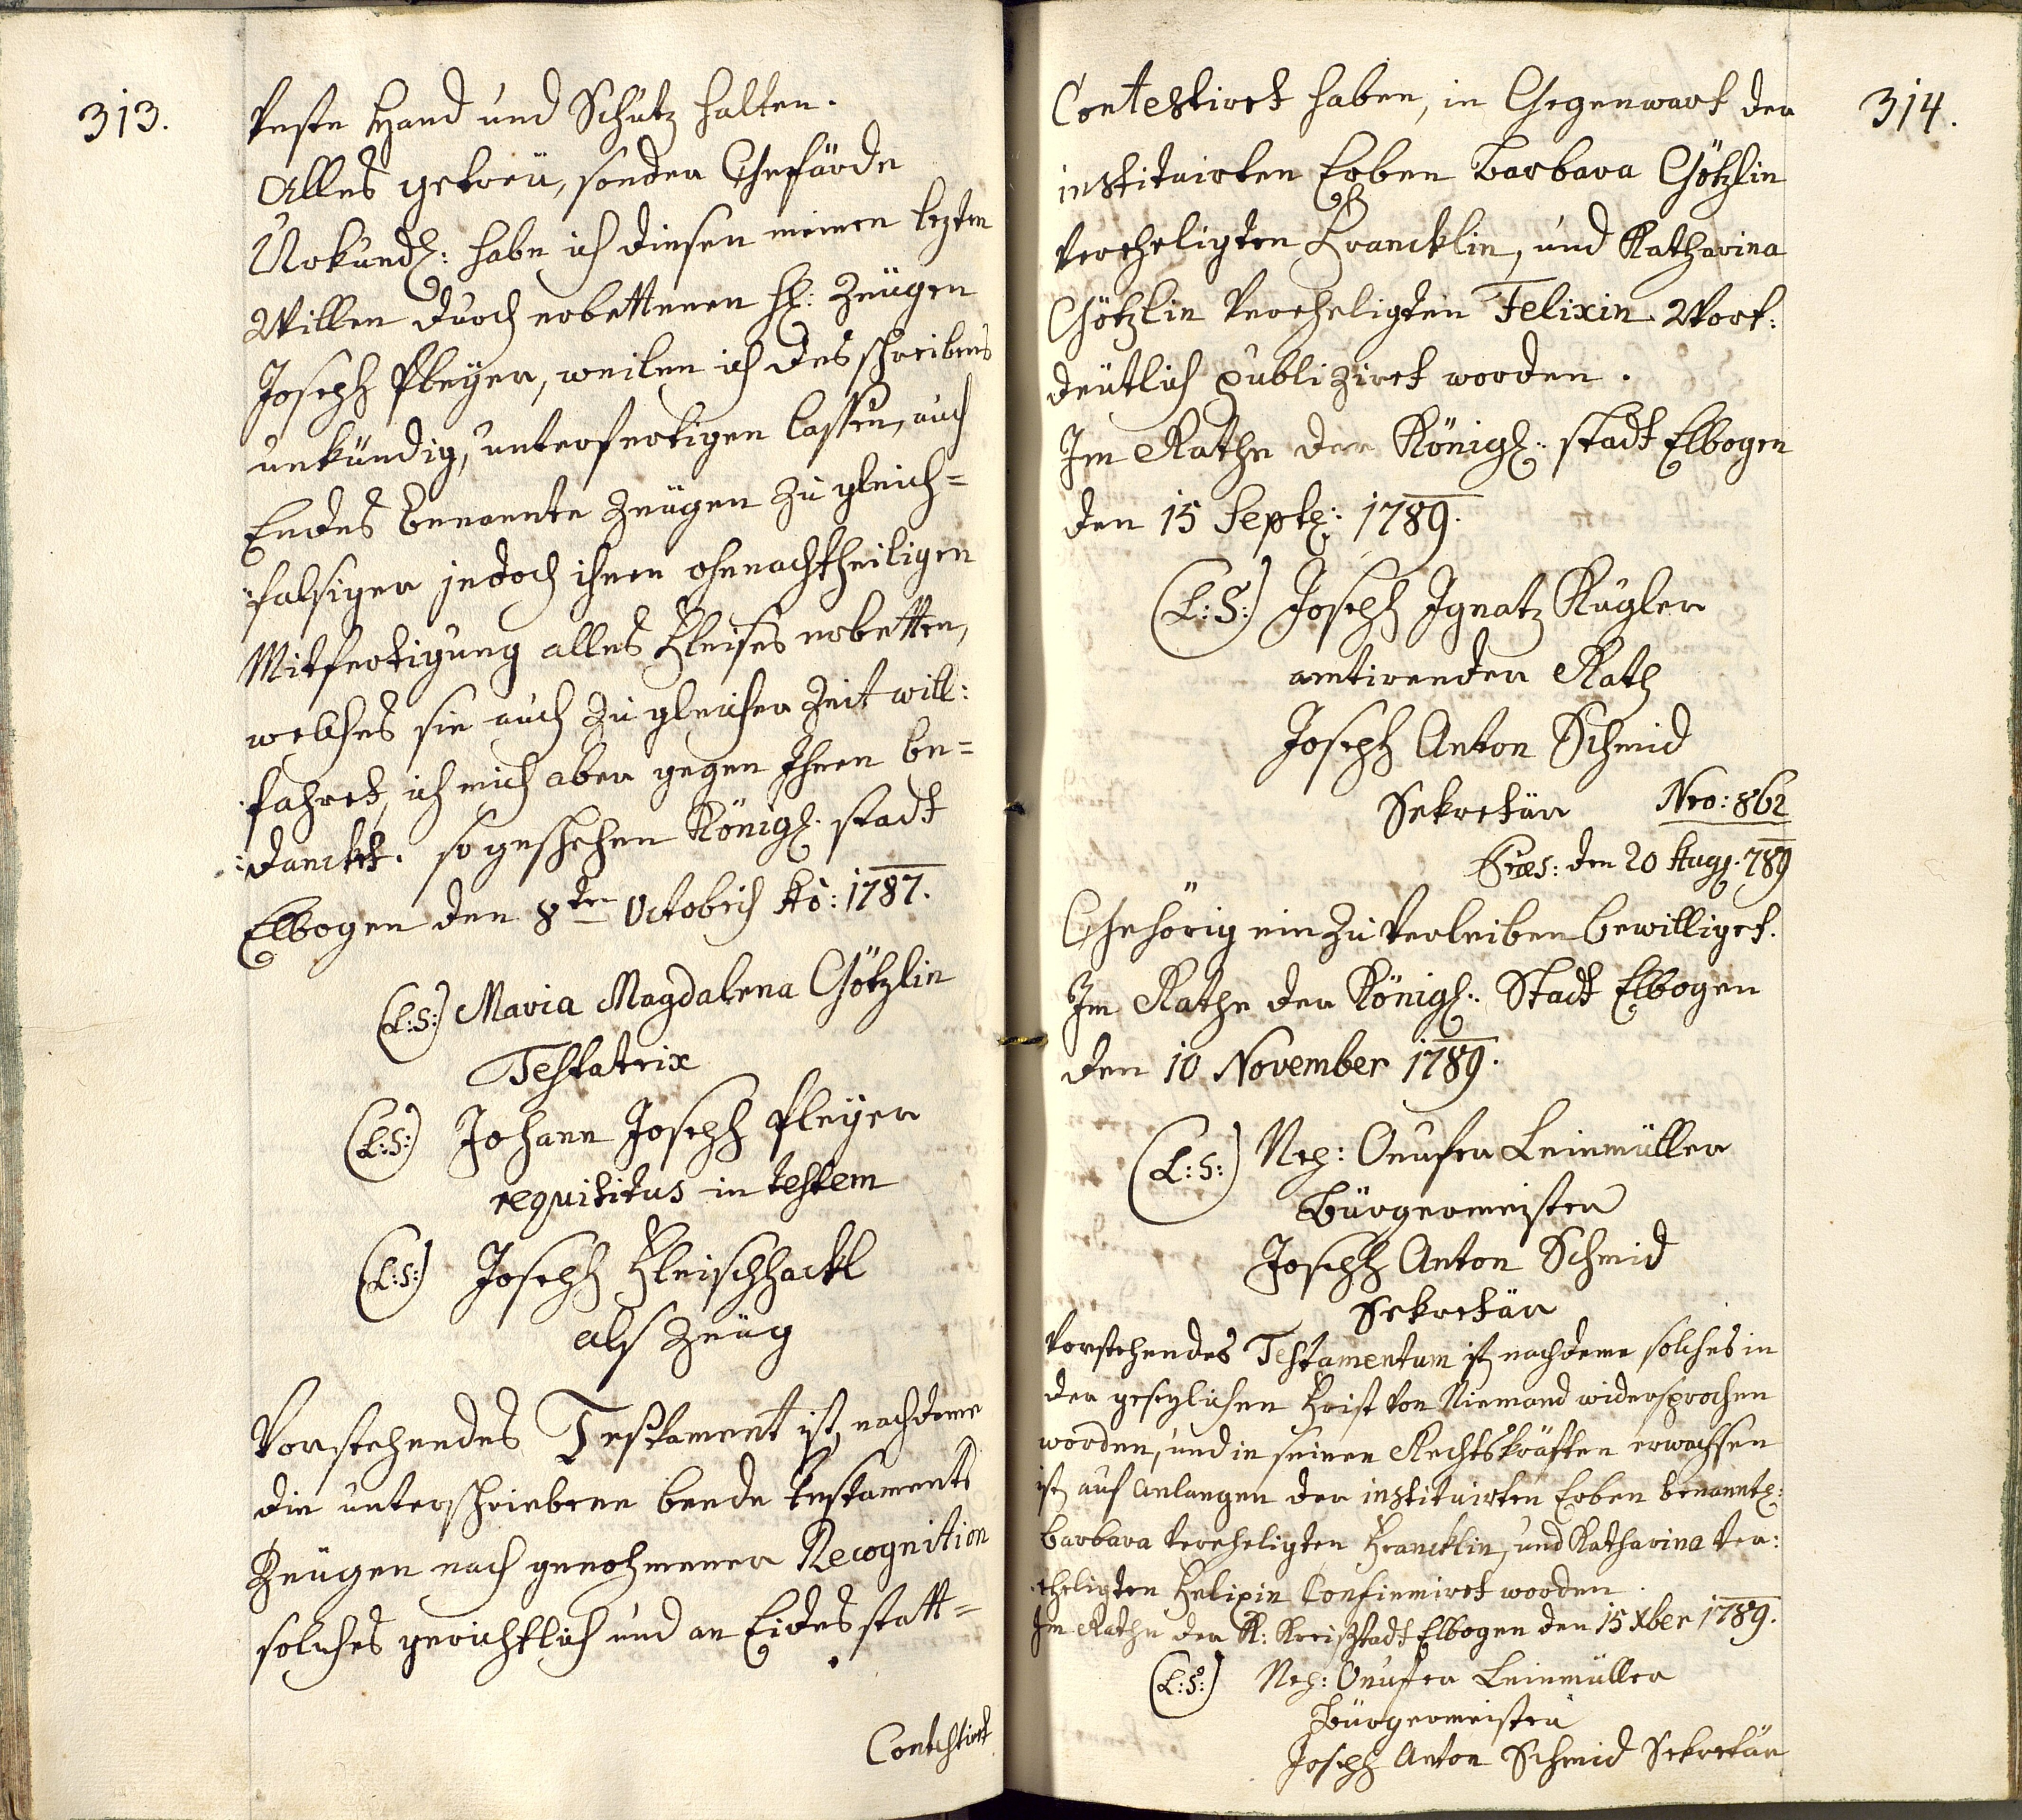 313.
veste Hand und Schutz halten.
Alles getreu, sonder Gefärde
Urkundl: habe ich diesen meinen lezten
Willen durch erbettenen H: Zeugen
Joseph Pleÿer, weilen ich des schreibens
unkündig, unterfertigen lassen, auch
Endes benannte Zeugen zu gleich-
falsiger jedoch ihnen ohnnachtheiligen
Mitfertigung alles Fleises erbetten,
welches sie auch zu gleicher Zeit will:
fahret, ich mich aber gegen Ihnen be-
danckt. so geschehen Königl: stadt
Elbogen den 8ten Octobris Ao: 1787.
(L:S:) Maria Magdalena Götzlin
Testatrix
(L:S:) Johann Joseph Pleÿer
requisitus in testem
(L:S:) Joseph Fleischhackl
als Zeüg
Vorstehendes Testament ist, nachdeme
die unterschriebene beede Testaments
Zeugen nach genohmener Recognition
solches gerichtlich und an Eides statt-
Contestiret
314.
Contestiret haben, in Gegenwart der
instituirten Erben Barbara Götzlin
verehligten Francklin, und Katharina
Götzlin verehligten Felixin Wort:
deutlich publiziret worden.
Im Rathe der Königl: stadt Elbogen
den 15 Sept: 1789.
(L:S:) Joseph Ignatz Kugler
amtirender Rath
Joseph Anton Schmid
Sekretär Nro: 862
Præs: den 20 Aug. 789
Gehörig einzuverleiben bewilliget.
Im Rathe der Königl: Stadt Elbogen
den 10 November 1789.
(L:S:) Nep: Onufer Leinmüller
Bürgermeister
Joseph Anton Schmid
Sekretär
Vorstehendes Testamentum ist nachdeme solches in
der gesezlichen Frist von Niemand widersprochen
worden, und in seinen Rechtskräften erwachsen
ist, auf anlangen der instituirten Erben benantl:
Barbara verehligten Francklin, und Katharina ver:
ehligten Felixin Confirmiret worden.
Im Rathe der K: Kreißstadt Elbogen den 15 Xber 1789.
(L:S:) Nep: Onufer Leinmüller
Bürgermeister
Joseph Anton Schmid Sekretär